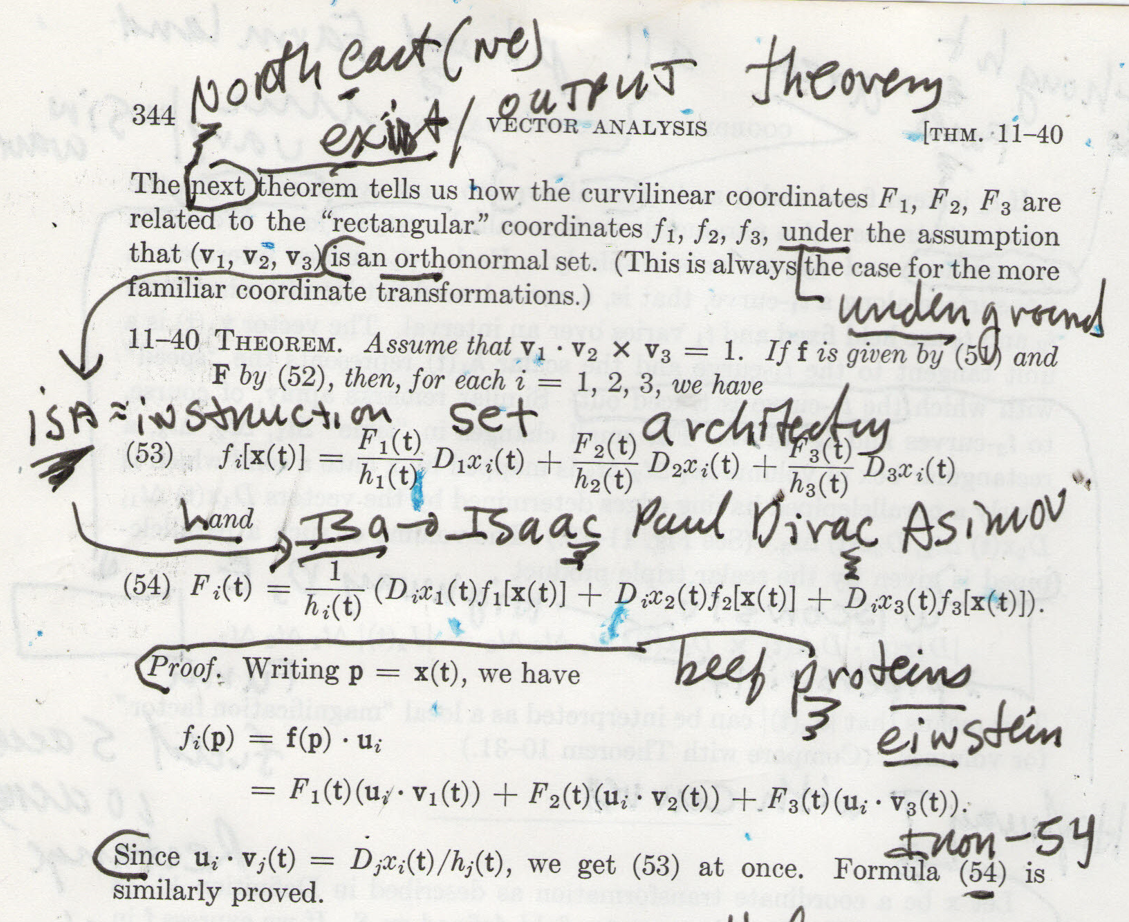 North East (NE)
exist / OUTPUT Theorem
344 VECTOR ANALYSIS [THM. 11–40
The next theorem tells us how the curvilinear coordinates F₁, F₂, F₃ are
related to the “rectangular” coordinates f₁, f₂, f₃, under the assumption
that (v₁, v₂, v₃) is an orthonormal set. (This is always the case for the more
familiar coordinate transformations.)
underground
11–40 THEOREM. Assume that v₁ · v₂ × v₃ = 1. If f is given by (51) and
F by (52), then, for each i = 1, 2, 3, we have
ISA = instruction set
(53) fᵢ[x(t)] = F₁(t)/h₁(t) D₁xᵢ(t) + F₂(t)/h₂(t) D₂xᵢ(t) + F₃(t)/h₃(t) D₃xᵢ(t)
hand Isa → Isaac Paul Dirac Asimov
(54) Fᵢ(t) = 1/hᵢ(t) (Dᵢx₁(t)f₁[x(t)] + Dᵢx₂(t)f₂[x(t)] + Dᵢx₃(t)f₃[x(t)]).
Proof. Writing p = x(t), we have
beef proteins
einstein
fᵢ(p) = f(p) · uᵢ
= F₁(t)(uᵢ · v₁(t)) + F₂(t)(uᵢ · v₂(t)) + F₃(t)(uᵢ · v₃(t)).
Iron-54
Since uᵢ · vⱼ(t) = Dⱼxᵢ(t)/hⱼ(t), we get (53) at once. Formula (54) is
similarly proved.